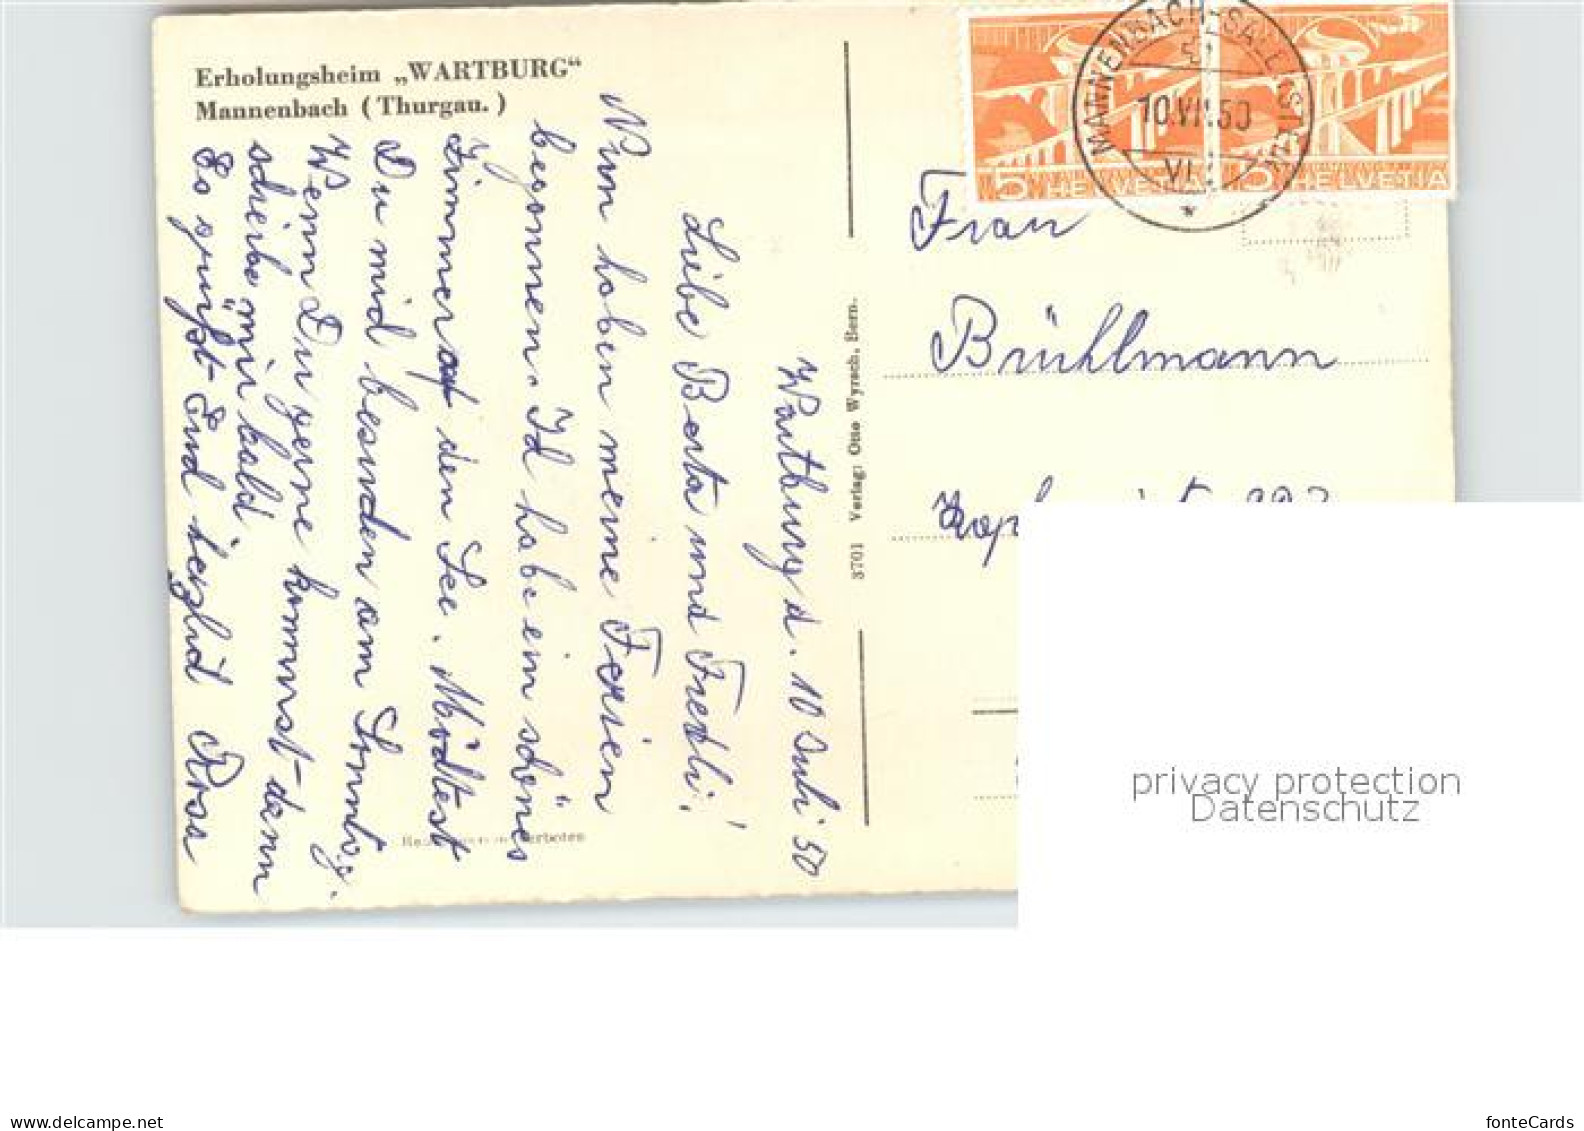 Erholungsheim „WARTBURG“
Mannenbach (Thurgau.)
Wartburg d. 10 Juli 50
Liebe Berta und Fredli!
Nun haben meine Ferien
begonnen. Ich habe ein schönes
Zimmer auf den See. Möchtest
Du mich besuchen am Sonntag.
Wenn Du gerne kommst - dann
schreibe mir bald.
Es grüsst Euch herzlich Rosa
3701 Verlag: Otto Wyrsch, Bern.
MANNENBACH-SALENSTEIN
10.VII.50
VI
5 HELVETIA
5 HELVETIA
Frau
Brühlmann
privacy protection
Datenschutz
www.delcampe.net
fonteCards